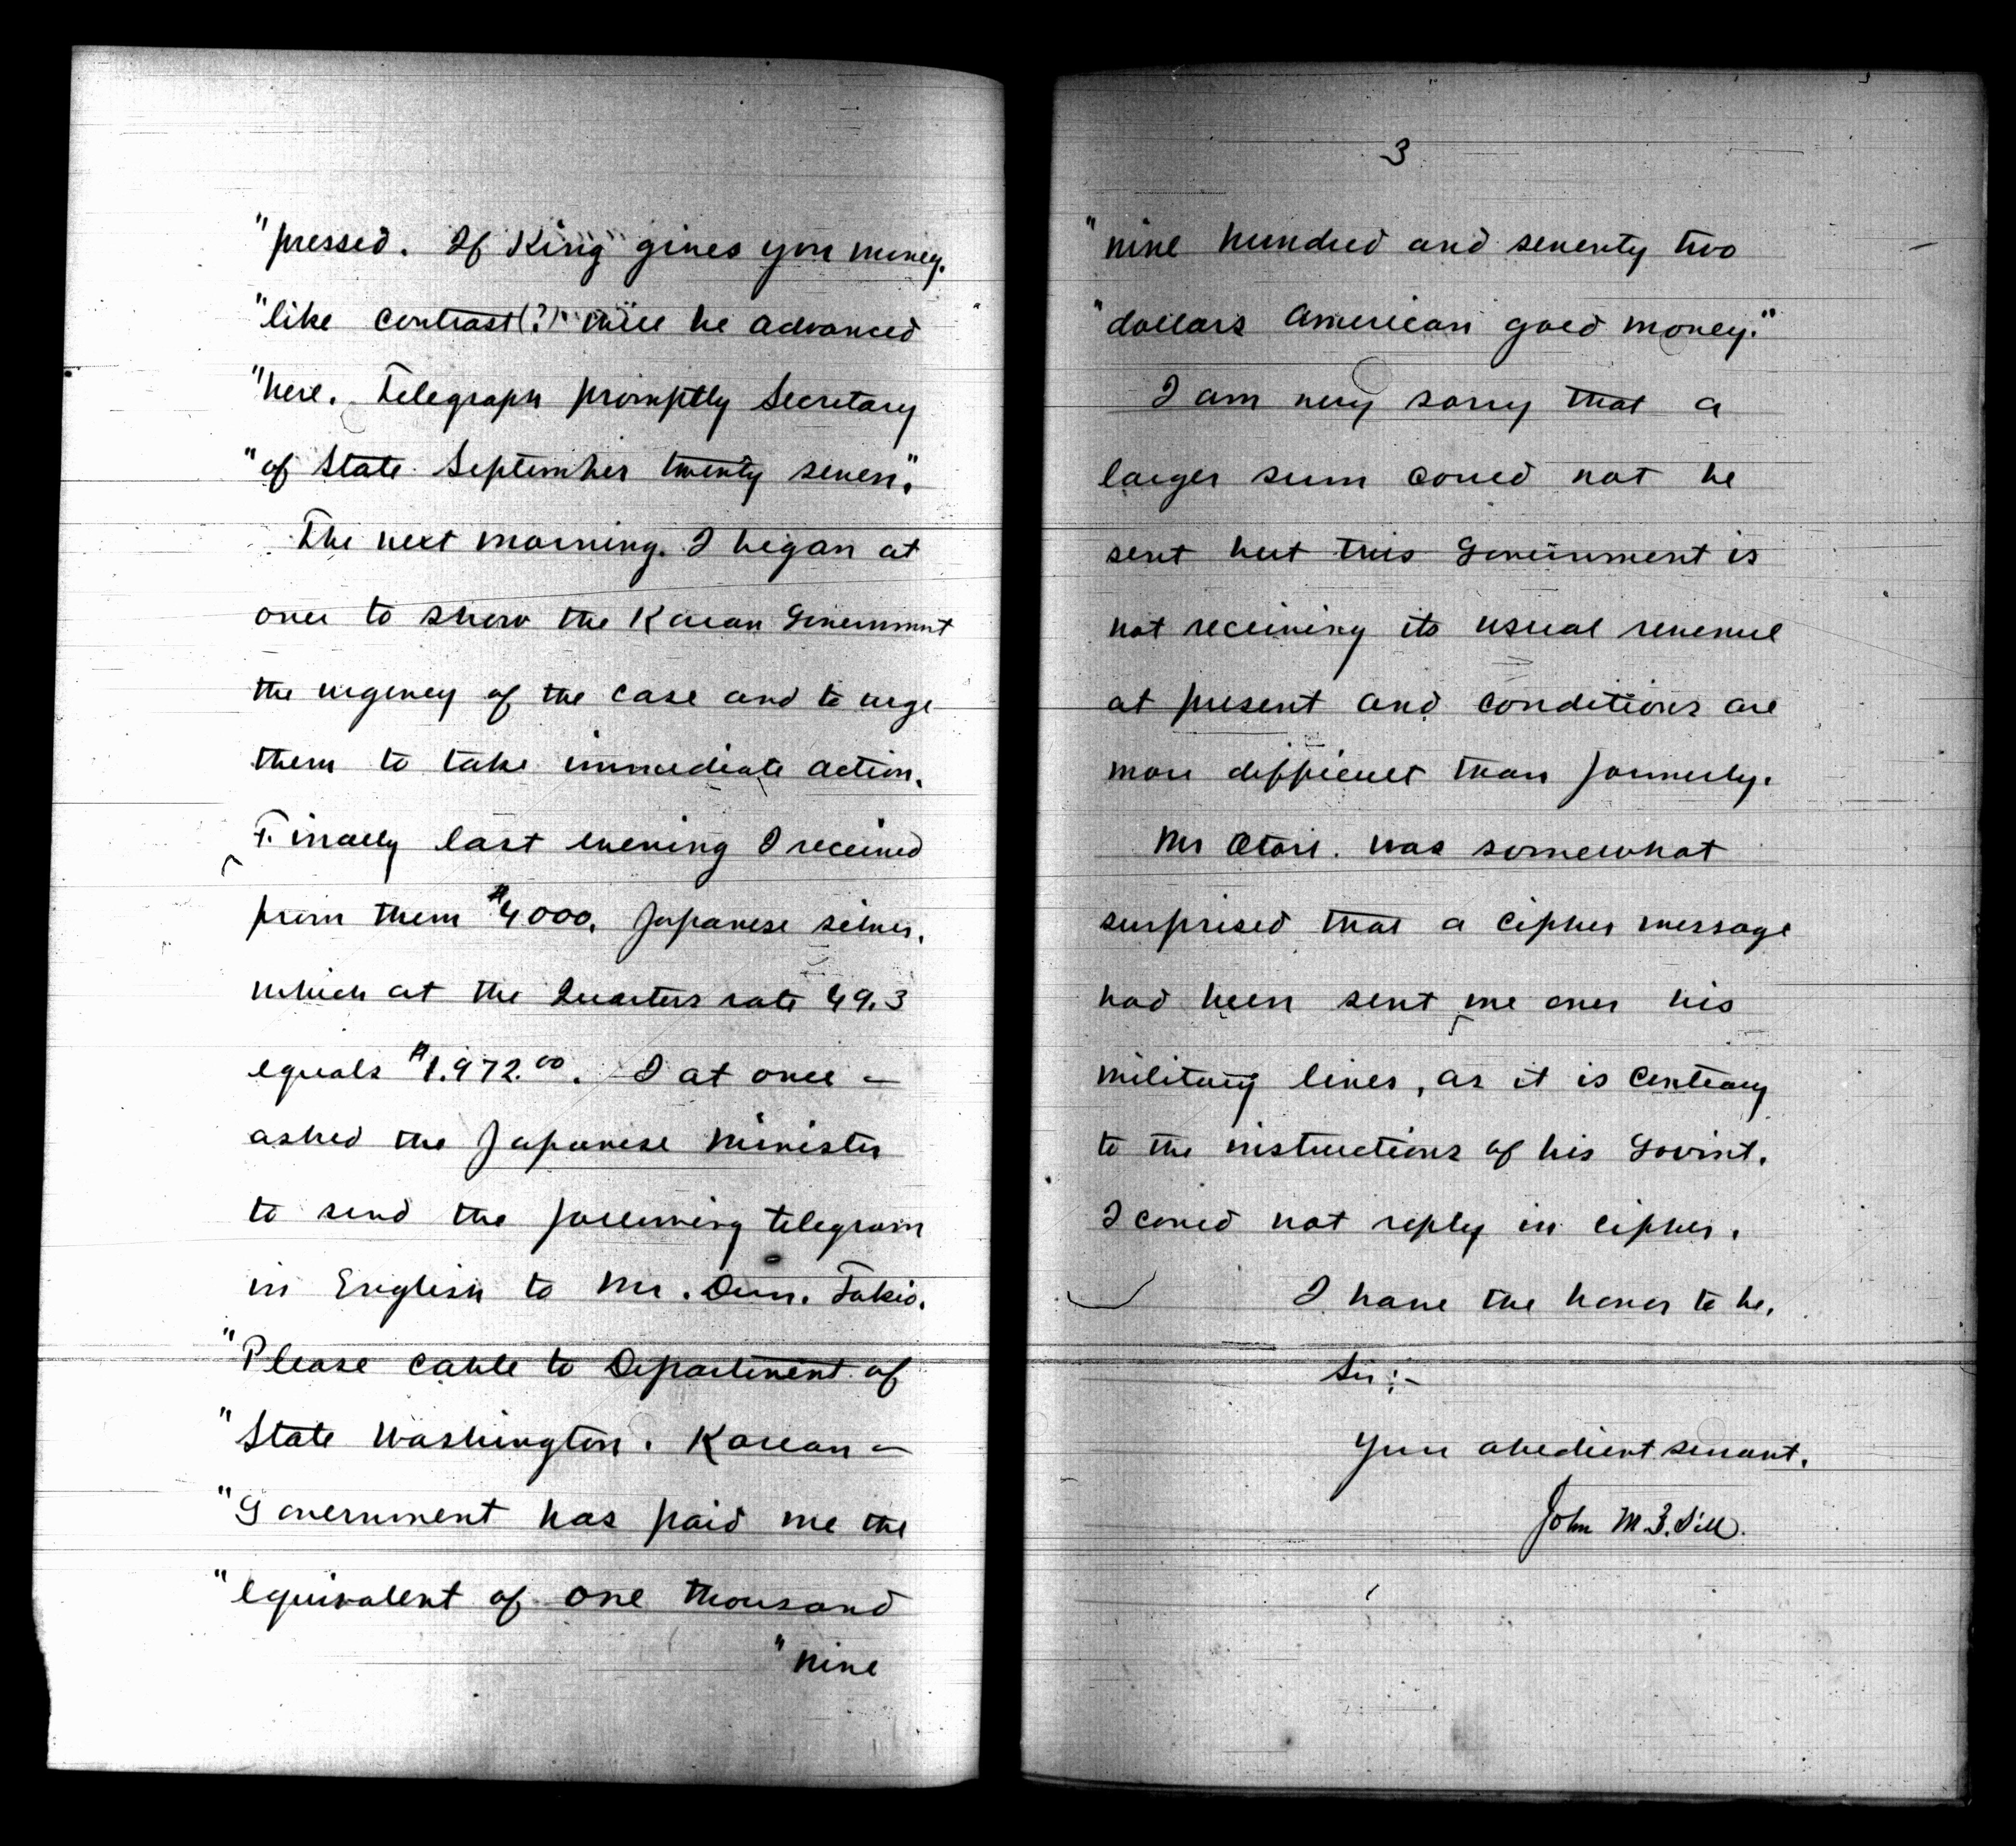 "pressed. If King gives you money.
"like contrast(?) will be advanced
"here. Telegraph promptly Secretary
"of State September twenty seven."
The next morning. I began at
once to show the Korean Government
the urgency of the case and to urge
them to take immediate action.
Finally last evening I received
from them $4000. Japanese silver.
which at the Quarters rate 49.3
equals $1.972.00. I at once –
asked the Japanese Minister
to send the following telegram
in English to Mr. Dun. Tokio.
"Please cable to Department of
"State Washington. Korean –
"Government has paid me the
"equivalent of one thousand
"nine
3
"nine hundred and seventy two
"dollars American gold money."
I am very sorry that a
larger sum could not be
sent but this Government is
not receiving its usual revenue
at present and conditions are
more difficult than formerly.
Mr Otori. was somewhat
surprised that a cipher message
had been sent me over his
military lines, as it is contrary
to the instructions of his Govmt.
I could not reply in cipher.
I have the honor to be.
Sir:-
Your obedient servant.
John M. B. Sill.